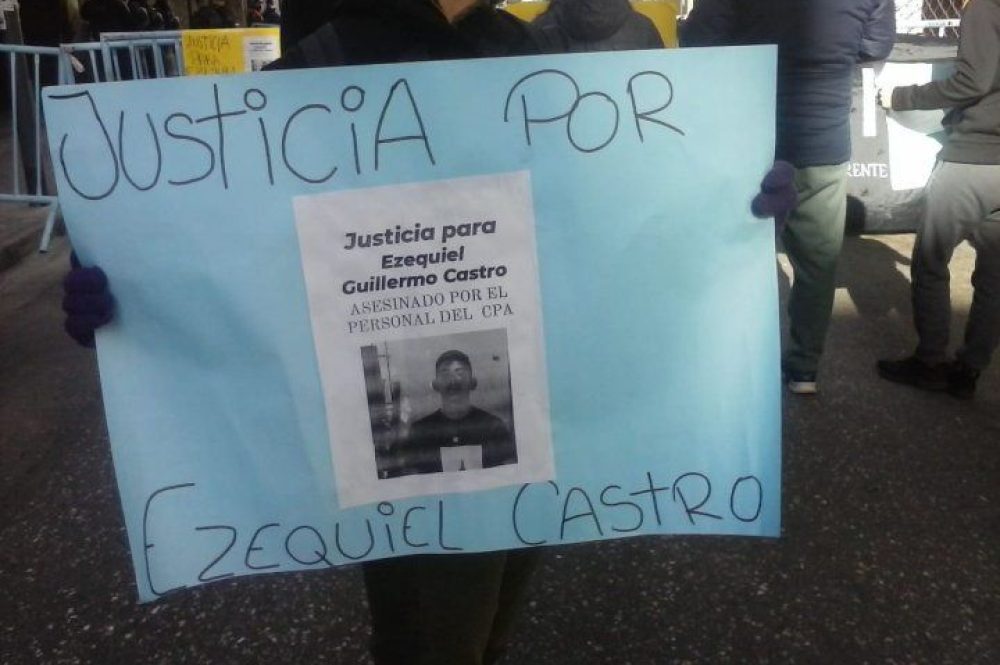 JUSTICIA
PARA
JUSTICIA POR
Justicia para
Ezequiel
Guillermo Castro
ASESINADO POR EL
PERSONAL DEL CPA
EZEQUIEL CASTRO
RENTE